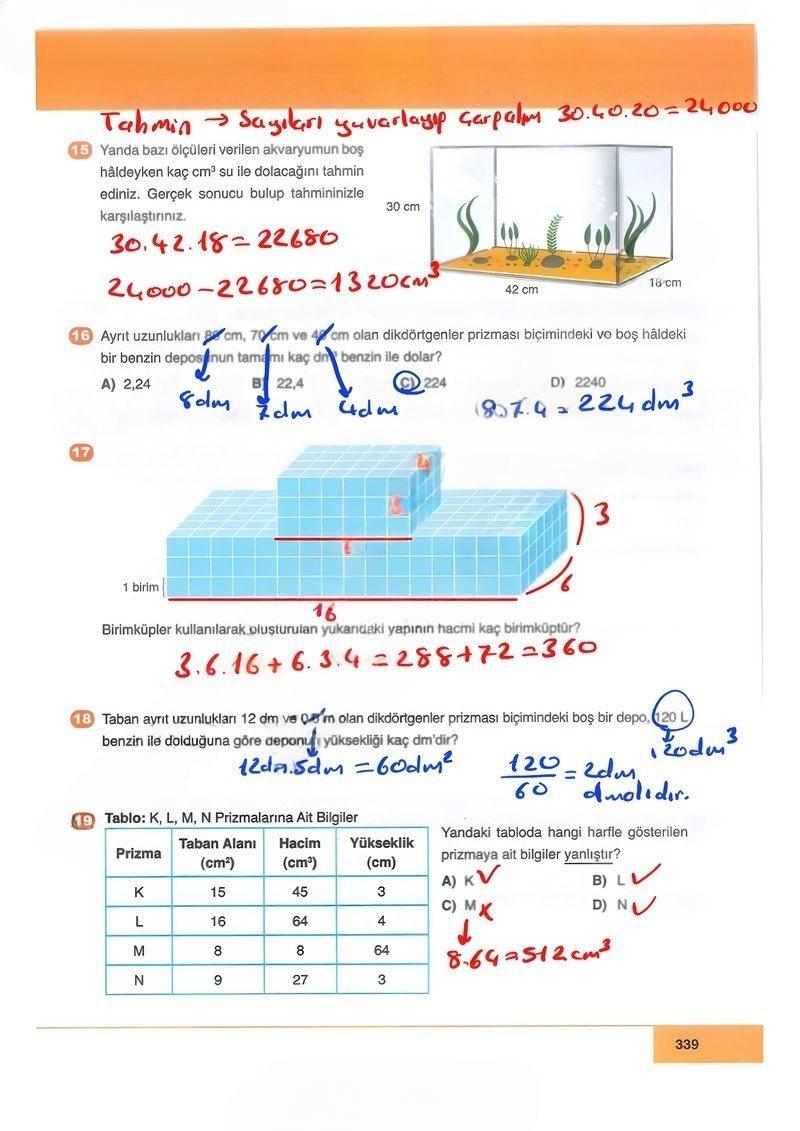 Tahmin → Sayıları yuvarlayıp çarpalım 30.40.20=24000
15 Yanda bazı ölçüleri verilen akvaryumun boş
hâldeyken kaç cm³ su ile dolacağını tahmin
ediniz. Gerçek sonucu bulup tahmininizle
karşılaştırınız.
30 cm
42 cm
18 cm
30.42.18=22680
24000-22680=1320cm³
16 Ayrıt uzunlukları 80 cm, 70 cm ve 40 cm olan dikdörtgenler prizması biçimindeki ve boş hâldeki
bir benzin deposunun tamamı kaç dm³ benzin ile dolar?
A) 2,24 B) 22,4 C) 224 D) 2240
8dm 7dm 4dm 8.7.4=224dm³
17
4
3
6
3
6
1 birim
16
Birimküpler kullanılarak oluşturulan yukarıdaki yapının hacmi kaç birimküptür?
3.6.16+6.3.4=288+72=360
18 Taban ayrıt uzunlukları 12 dm ve 0,5 m olan dikdörtgenler prizması biçimindeki boş bir depo, 120 L
benzin ile dolduğuna göre deponun yüksekliği kaç dm'dir?
120dm³
12dm.5dm=60dm² 120/60=2dm
olmalıdır.
19 Tablo: K, L, M, N Prizmalarına Ait Bilgiler
Prizma Taban Alanı (cm²) Hacim (cm³) Yükseklik (cm)
K 15 45 3
L 16 64 4
M 8 8 64
N 9 27 3
Yandaki tabloda hangi harfle gösterilen
prizmaya ait bilgiler yanlıştır?
A) K ✓ B) L ✓
C) M x D) N ✓
8.64=512cm³
339